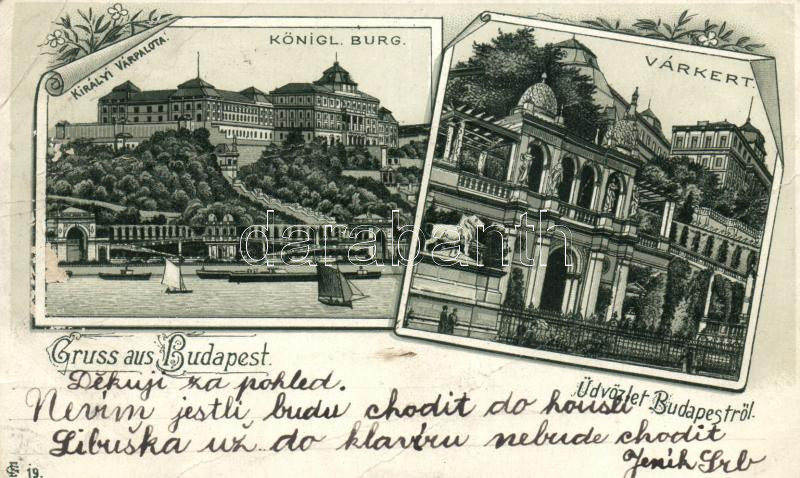 KIRÁLYI VÁRPALOTA.
KÖNIGL. BURG.
VÁRKERT.
darabanth
Gruss aus Budapest.
Üdvözlet Budapestről.
Děkuji za pohled.
Nevím jestli budu chodit do houslí
Libuška už do klavíru nebude chodit
Jeník Srb
19.